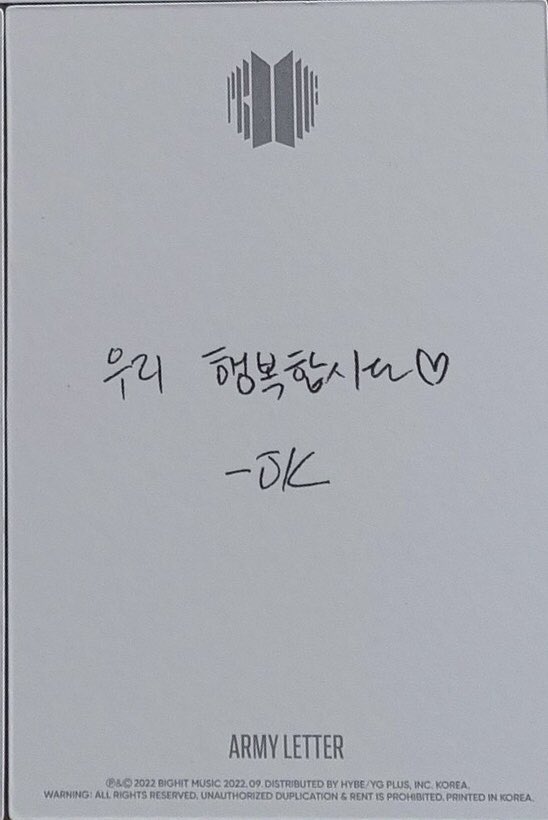 우리 행복합시다♡
-JK
ARMY LETTER
℗&© 2022 BIGHIT MUSIC 2022. 09. DISTRIBUTED BY HYBE/YG PLUS, INC. KOREA.
WARNING: ALL RIGHTS RESERVED. UNAUTHORIZED DUPLICATION & RENT IS PROHIBITED. PRINTED IN KOREA.